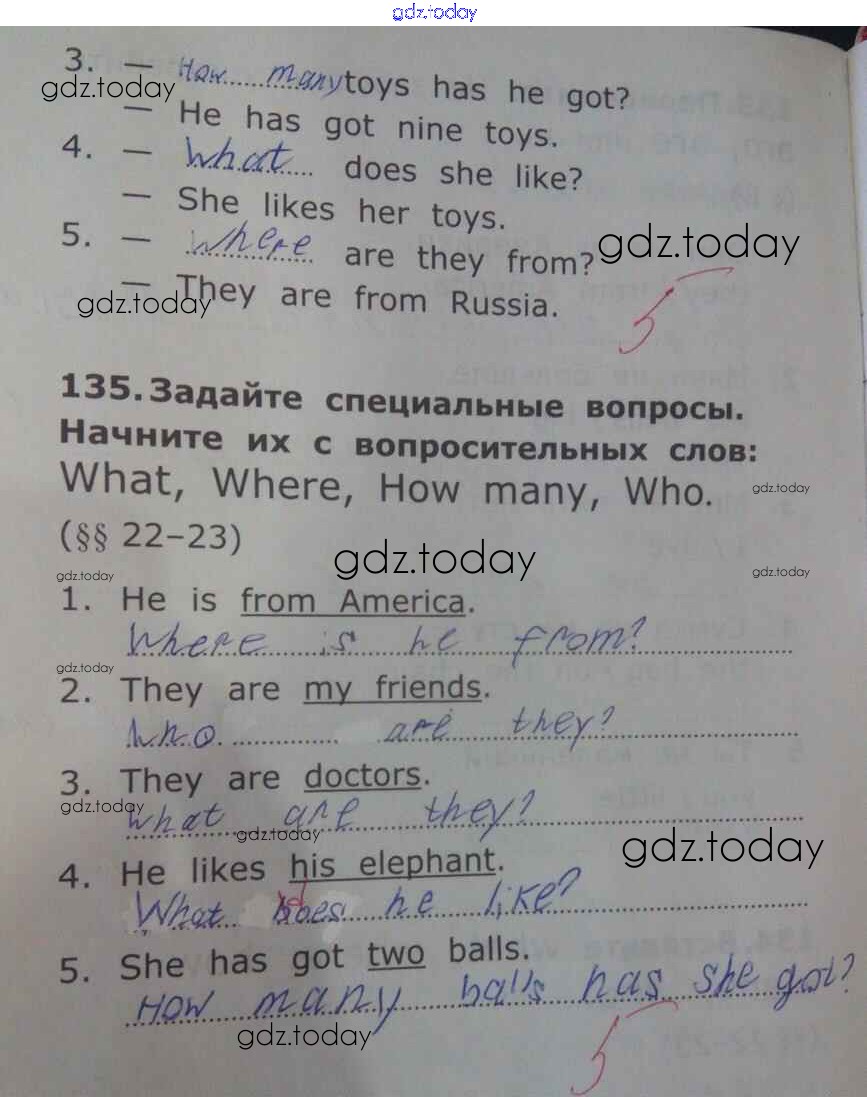 gdz.today
3. — How many toys has he got?
gdz.today
— He has got nine toys.
4. — What does she like?
— She likes her toys.
5. — Where are they from?
gdz.today
— They are from Russia.
gdz.today
5
135. Задайте специальные вопросы.
Начните их с вопросительных слов:
What, Where, How many, Who.
gdz.today
(§§ 22–23)
gdz.today
gdz.today
gdz.today
1. He is from America.
Where is he from?
gdz.today
2. They are my friends.
Who are they?
3. They are doctors.
gdz.today
What are they?
gdz.today
gdz.today
4. He likes his elephant.
What does he like?
5. She has got two balls.
How many balls has she got?
gdz.today
5